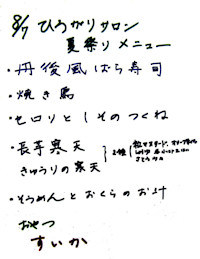 8/7 ひろがりサロン
夏祭りメニュー
・丹後風ばら寿司
・焼き鳥
・セロリとしそのつくね
・長芋寒天
きゅうりの寒天
2種
・そうめんとおくらのお汁
おやつ
すいか